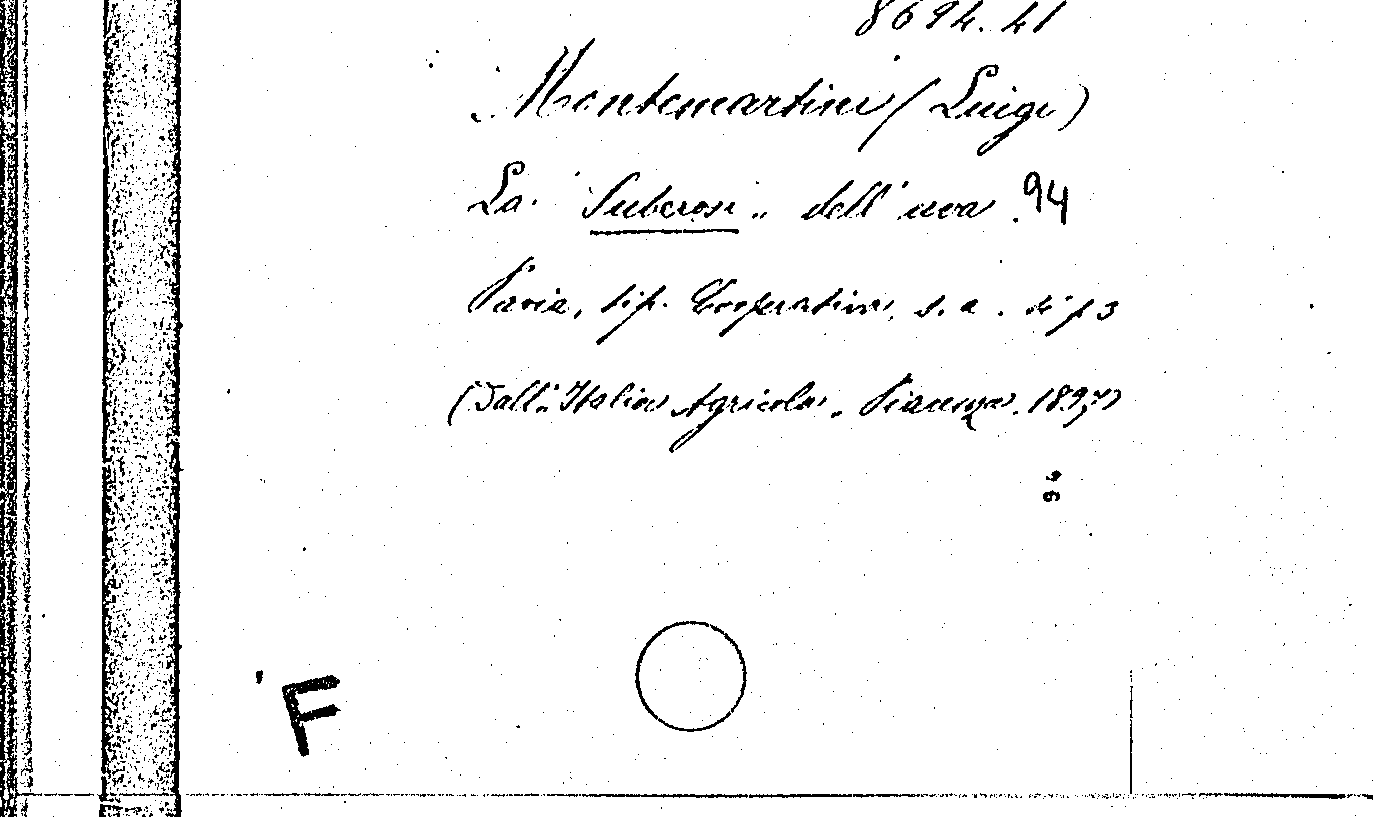 8694.41
Montemartini (Luigi)
La "Suberosi" dell'uva. 94
Pavia, tip. Cooperativa, s. a. di p 3
(Dall'"Italia Agricola". Piacenza. 1897)
94
F